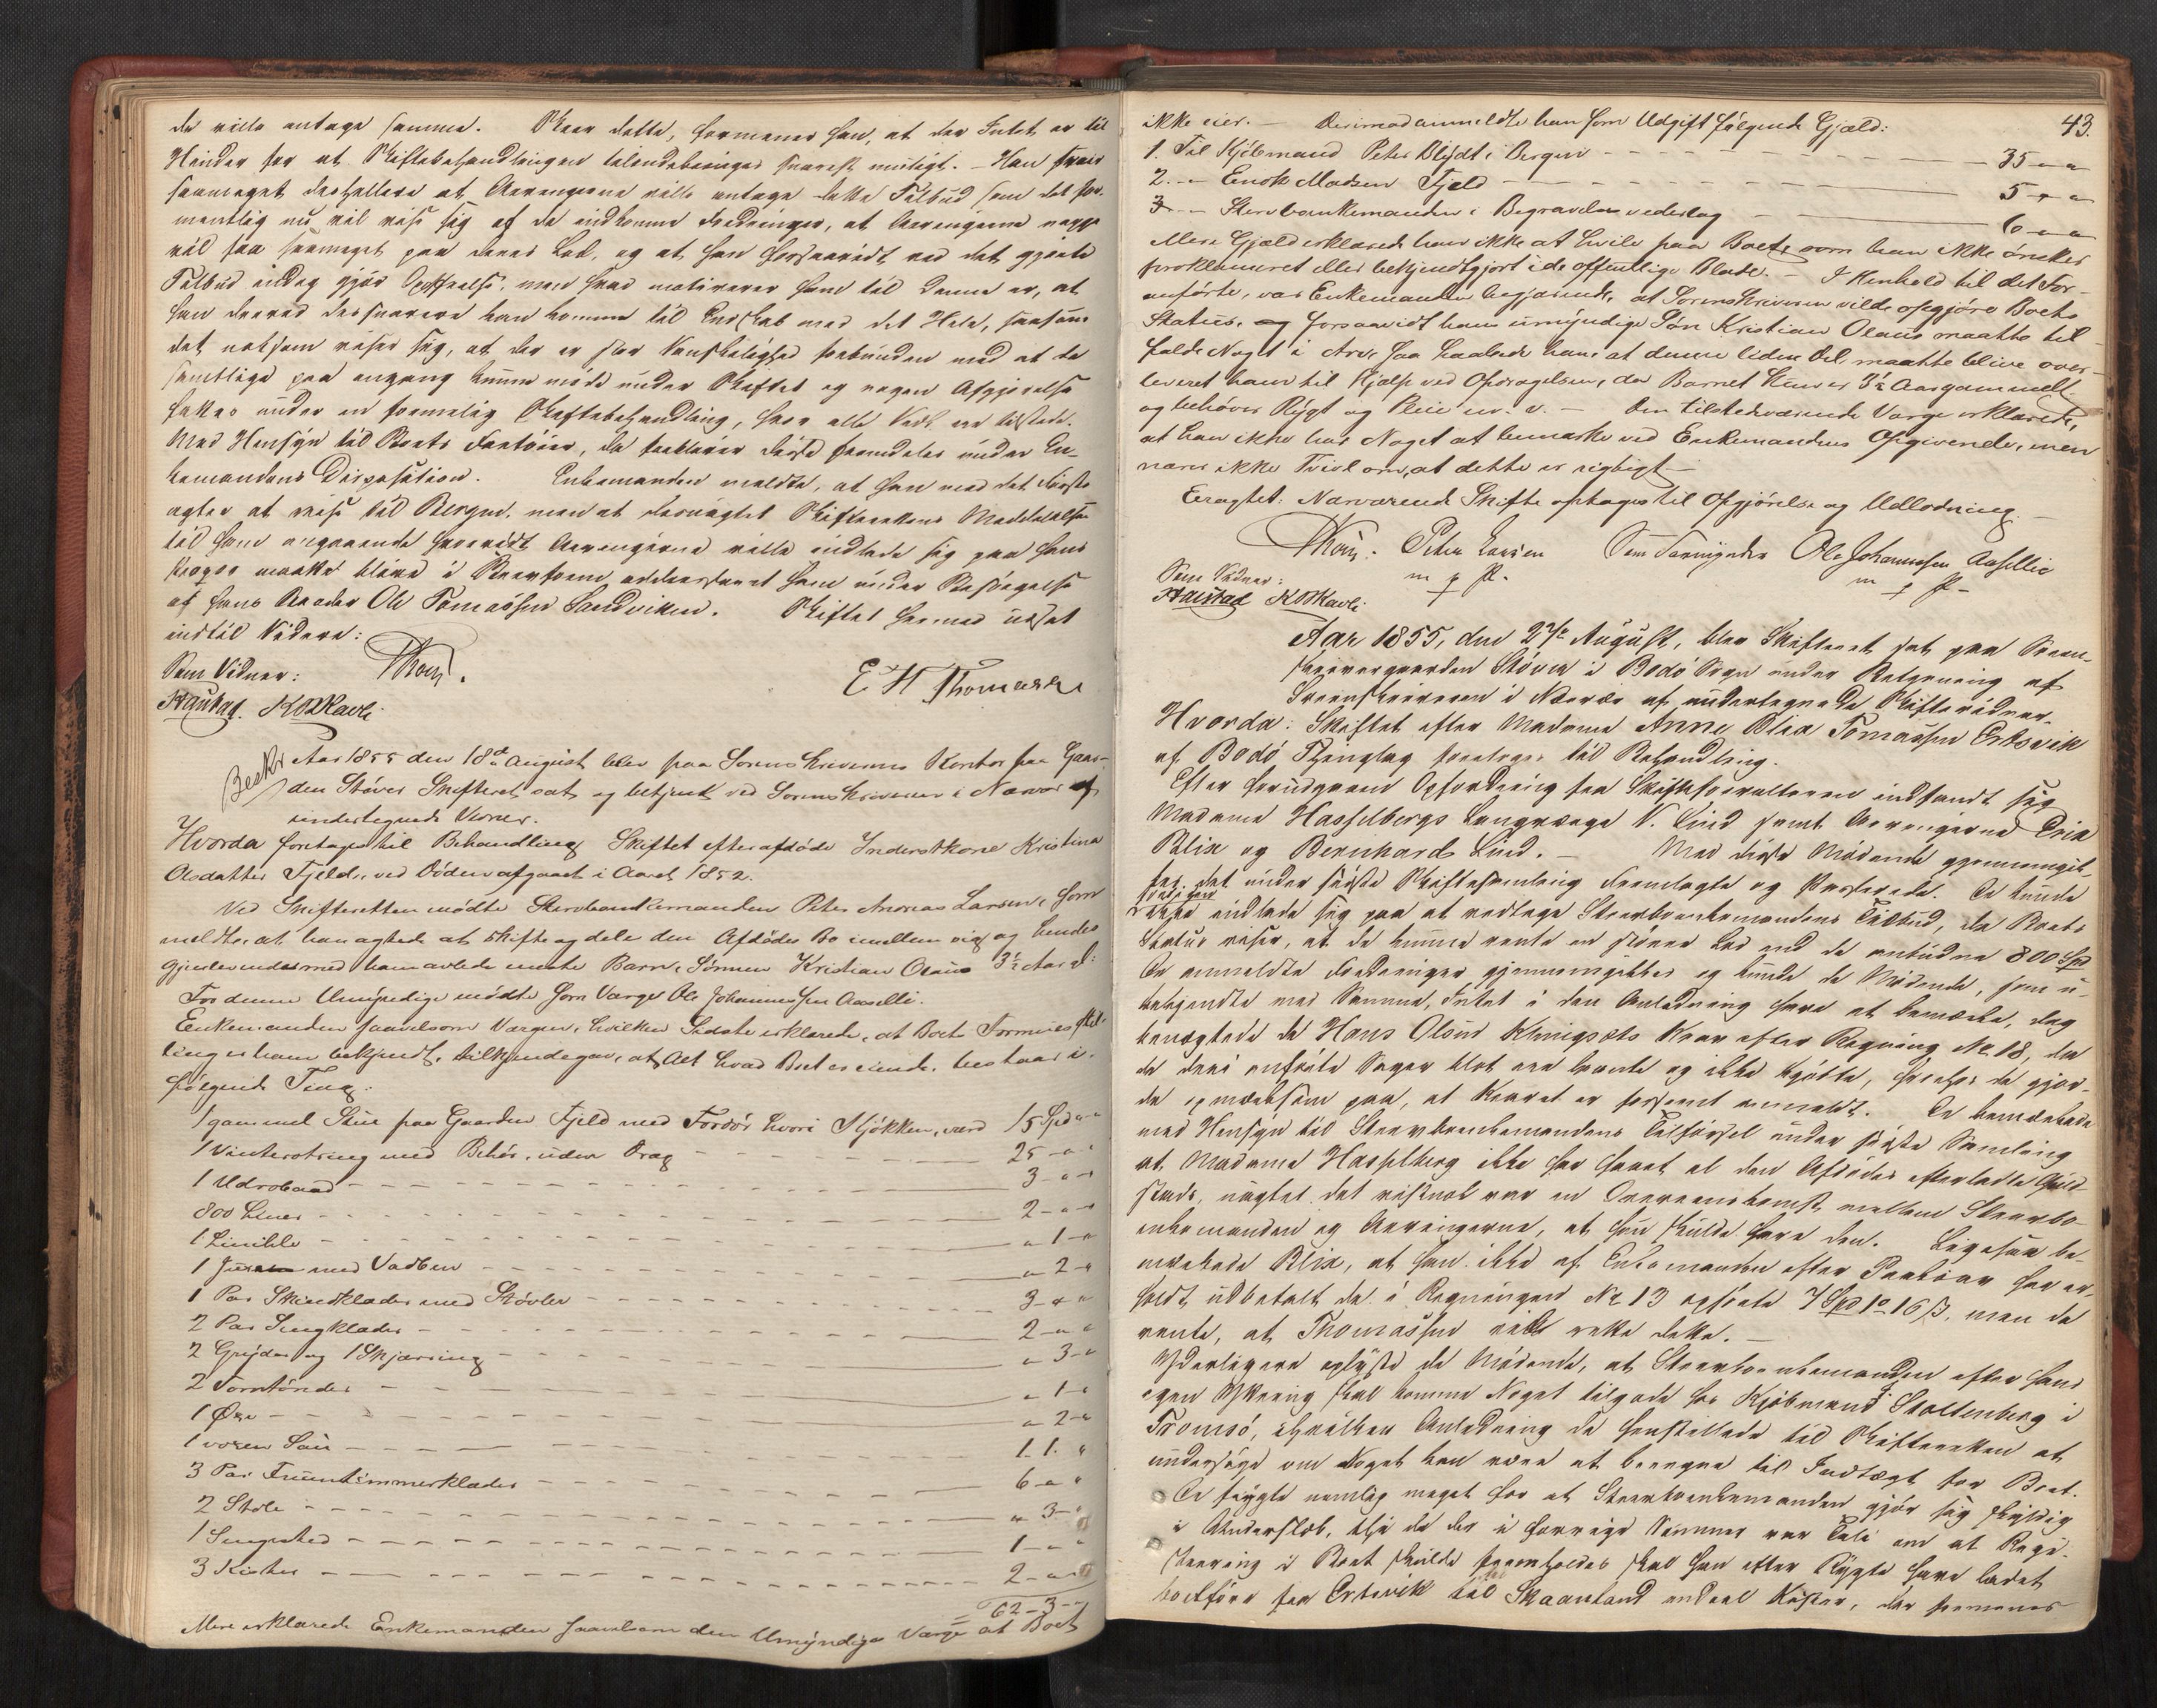 de ville antage samme. Skeer dette, formener han, at der Intet er til
Hinder for at Skiftebehandlingen tilendebringes snarest muligt. – Han troer
saameget desheller at Arvingerne ville antage dette Tilbud som det for-
mentlig nu vil vise sig af de indkomne Fordringer, at Arvingerne neppe
vil faa saameget paa deres Lod, og at han forsaavidt ved det gjorte
Tilbud endog gjør Opoffrelse, men hvad motiverer ham til denne er, at
han derved dessnarere kan komme til Endskab med det Hele, saasom
det noksom viser sig, at der er stor Vanskelighed forbunden med at de
samtlige paa engang kunne møde under Skiftet og nogen Afgjørelse
haves under en formelig Skiftebehandling, hvor alle Vedk. ere tilstede.
Med Hensyn til Boets Fartøier, da forbliver disse fremdeles under En-
kemandens Disposition. Enkemanden meldte, at han med det Første
agter at reise til Bergen, men at desuagtet Skifterettens Meddelelse
til ham angaaende hvorvidt Arvingerne ville indlade sig paa hans
Forslag maatte blive i Brevform adresseret ham under Besørgelse
af hans Broder Ole Tomassen Sandviken. Skiftet hermed udsat
indtil Videre:
Som Vidner: Thoss.
E H Thomassen
Haustad. KOSkavli
Beskr
Aar 1855 den 18de August blev paa Sorenskriverens Kontor paa Gaar-
den Støver Skifteret sat og betjent ved Sorenskriveren i Næværs af
undertegnede Vidner.
Hvorda foretoges til Behandling Skiftet efter afdøde Inderstkone Kristina
Olsdatter Fjeld, ved Døden afgaaet i Aaret 1852.
Ved Skifteretten mødte Stervboenkemanden Peter Andreas Larsen, som
meldte, at han agtede at skifte og dele den Afdødes Bo imellem sig og hendes
gjenlevende med ham avlede eneste Barn, Sønnen Kristian Olaus 3½ Aar gl:
For denne Umyndige mødte som Værge Ole Johannessen Aaselli.
Enkemanden saavelsom Værgen, hvilken Sidste erklærede, at Boets Formues Stil-
ling er ham bekjendt, tilkjendegav, at Alt hvad Boet er eiende, bestaar i
følgende Ting:
1 gammel Stue paa Gaarden Fjeld med Fordør hvori Kjøkken, værd 15 Spd " "
1 Vinterottring med Behør, uden Drag – – – 25 – " "
1 Udrobaad – – – 3 – " "
800 Liner – – – 2 – " "
1 Linible – – – " 1 – "
1 Jusesen med Vadben – – – " 2 – "
1 Par Skindklæder med Støvler – – – 3 – " "
2 Par Sengklæder – – – 2 – " "
2 Gryder og 1 Skjæring – – – " 3 – "
2 Torntønder – – – " 1 – "
1 Øxe – – – " 2 – "
1 voxen Sau – – – 1. 1. "
3 Par Fruentimmerklæder – – – 6 – " "
2 Stole – – – " 3 – "
1 Sengested – – – 1 – " "
3 Kister – – – 2 – " "
= 62 – 3 – "
Mere erklærede Enkemanden saavelsom den Umyndiges Værge at Boet
43.
ikke eier. – Derimod anmeldte han som Udgift følgende Gjæld:
1. Til Kjøbmand Peter Blydt i Bergen – – – 35 – " "
2. – " Enok Madsen Fjeld – – – 5 – " "
3. – – Stervboenkemanden i Begravelsevederlag – – – 6 – " "
Mere Gjæld erklærede han ikke at hvile paa Boet, som han ikke ønsker
proklameret eller bekjendtgjort i de offentlige Blade. – I Henhold til det For-
anførte, var Enkemanden begjærende, at Sorenskriveren vilde opgjøre Boets
Status, og forsaavidt hans umyndige Søn Kristian Olaus maatte til-
falde Noget i Arv, saa haabede han at denne liden Del maatte blive over-
leveret ham til Hjælp ved Opdragelsen, da Barnet kun er 3½ Aar gammelt
og behøver Rygt og Pleie m. v. – Den tilstedeværende Værge erklærede,
at han ikke har Noget at bemærke ved Enkemandens Opgivende, men
nærer ikke Tvivl om, at dette er rigtigt. –
Eragtet: Nærværende Skifte optages til Opgjørelse og Udlodning.
Thoss. Peter Larsen Som Formynder Ole Johannesen Aaselli
m f P. m f P –
Som Vidner:
Haustad KOSkavli
Aar 1855, den 27de August, blev Skifteret sat paa Soren-
skrivergaarden Støver i Bodø Sogn under Betjening af
Sorenskriveren i Næværs af undertegnede Skiftevidner.
Hvorda: Skiftet efter Madame Anne Blix Tomassen Ertsvik
af Bodø Thinglag foretoges til Behandling.
Efter forudgaaen Opfordring fra Skifteforvalteren indfandt sig
Madame Hasselbergs Laugværge N. Lind samt Arvingerne Erik
Blix og Bernhard Lind. – Med disse Mødende gjennemgik-
kes det under sidste Skiftesamling Fremlagte og Passerede. De kunde
ikke indlade sig paa at vedtage Stervboenkemandens Tilbud, da Boets
Status viser, at de kunne vente en større Lod end de anbudne 800 Spd
De anmeldte Fordringer gjennemgikkes og kunde de Mødende, som u-
bekjendte med Samme, Intet i den Anledning have at bemærke, dog
benægtede de Hans Olsens Khrigsets Krav efter Regning № 18, da
de deri anførte Sager blot ere laante og ikke kjøbte, hvorhos de gjør-
de opmærksom paa, at Kravet er forsent anmeldt. De bemærkede
med Hensyn til Stervboenkemandens Tilførsel under sidste Samling
at Madame Hasselberg ikke har faaet al den Afdødes efterladte Guld-
stads, uagtet det vistnok var en Overeenskomst mellem Stervbo-
enkemanden og Arvingerne, at hun skulde have den. Ligesaa be-
mærkede Blix, at han ikke af Enkemanden efter Paakrav har er-
holdt udbetalt de i Regningen № 13 opførte 7 Spd 1 16 ß, men da
vente, at Thomassen vil rette dette. –
Yderligere oplyste de Mødende, at Stervboenkemanden efter hans
egen Ytring skal komme Noget tilgode hos Kjøbmand Stoltenberg i
Tromsø, i hvilken Anledning de henstillede til Skifteretten at
undersøge om Noget kan være at beregne til Indtægt for Boet.
De frygte nemlig meget for at Stervboenkemanden gjør sig skyldig
i Underslæb, thi da der i forrige Sommer var Tale om at Regi-
strering i Boet skulde foreholdes skal han efter Rygte have ladet
bortføre fra Ertsvik til Skaanland endeel Kister, der formenes